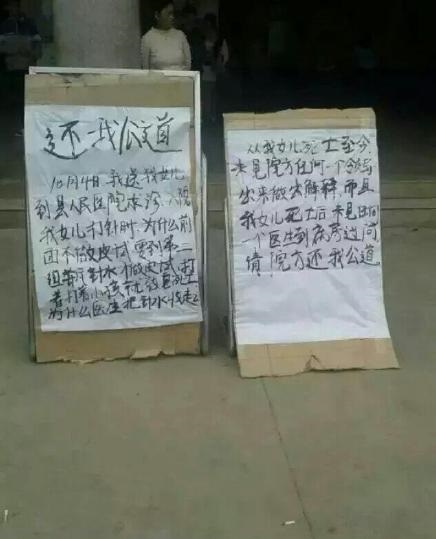 还我公道
10月4日我送我女儿
到县人民医院来诊
我女儿打针时为什么前
面不做皮试要到第二
组青针水才做皮试打
着打着小孩就这
为什么医生把针水收走
从我女儿死亡至今
未见院方任何一个领导
出来做出解释而且
我女儿死亡后未见任何
一个医生到病房过问
情！院方还我公道